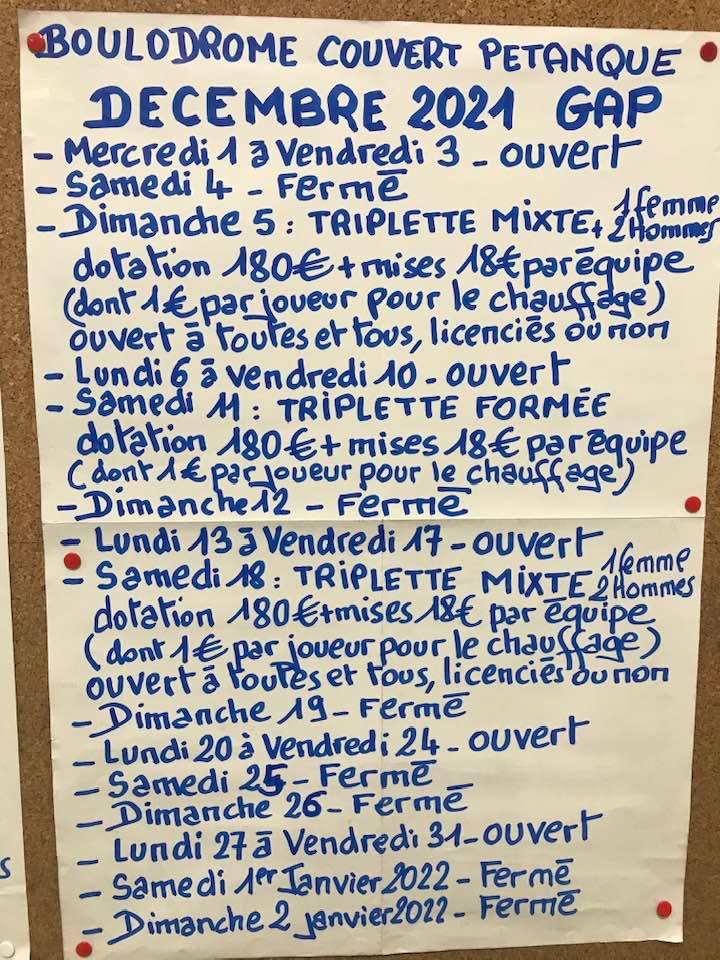 BOULODROME COUVERT PETANQUE
DECEMBRE 2021 GAP
- Mercredi 1 à Vendredi 3 - ouvert
- Samedi 4 - Fermé
- Dimanche 5 : TRIPLETTE MIXTE + 1 femme
2 Hommes
dotation 180€ + mises 18€ par équipe
(dont 1€ par joueur pour le chauffage)
ouvert à toutes et tous, licenciés ou non
- Lundi 6 à vendredi 10 - ouvert
- Samedi 11 : TRIPLETTE FORMÉE
dotation 180€ + mises 18€ par équipe
(dont 1€ par joueur pour le chauffage)
- Dimanche 12 - Fermé
- Lundi 13 à Vendredi 17 - ouvert
- Samedi 18 : TRIPLETTE MIXTE 1 femme
2 Hommes
dotation 180€ + mises 18€ par équipe
(dont 1€ par joueur pour le chauffage)
ouvert à toutes et tous, licenciés ou non
- Dimanche 19 - Fermé
- Lundi 20 à Vendredi 24 - ouvert
- Samedi 25 - Fermé
- Dimanche 26 - Fermé
- Lundi 27 à Vendredi 31 - ouvert
- Samedi 1er Janvier 2022 - Fermé
- Dimanche 2 janvier 2022 - Fermé